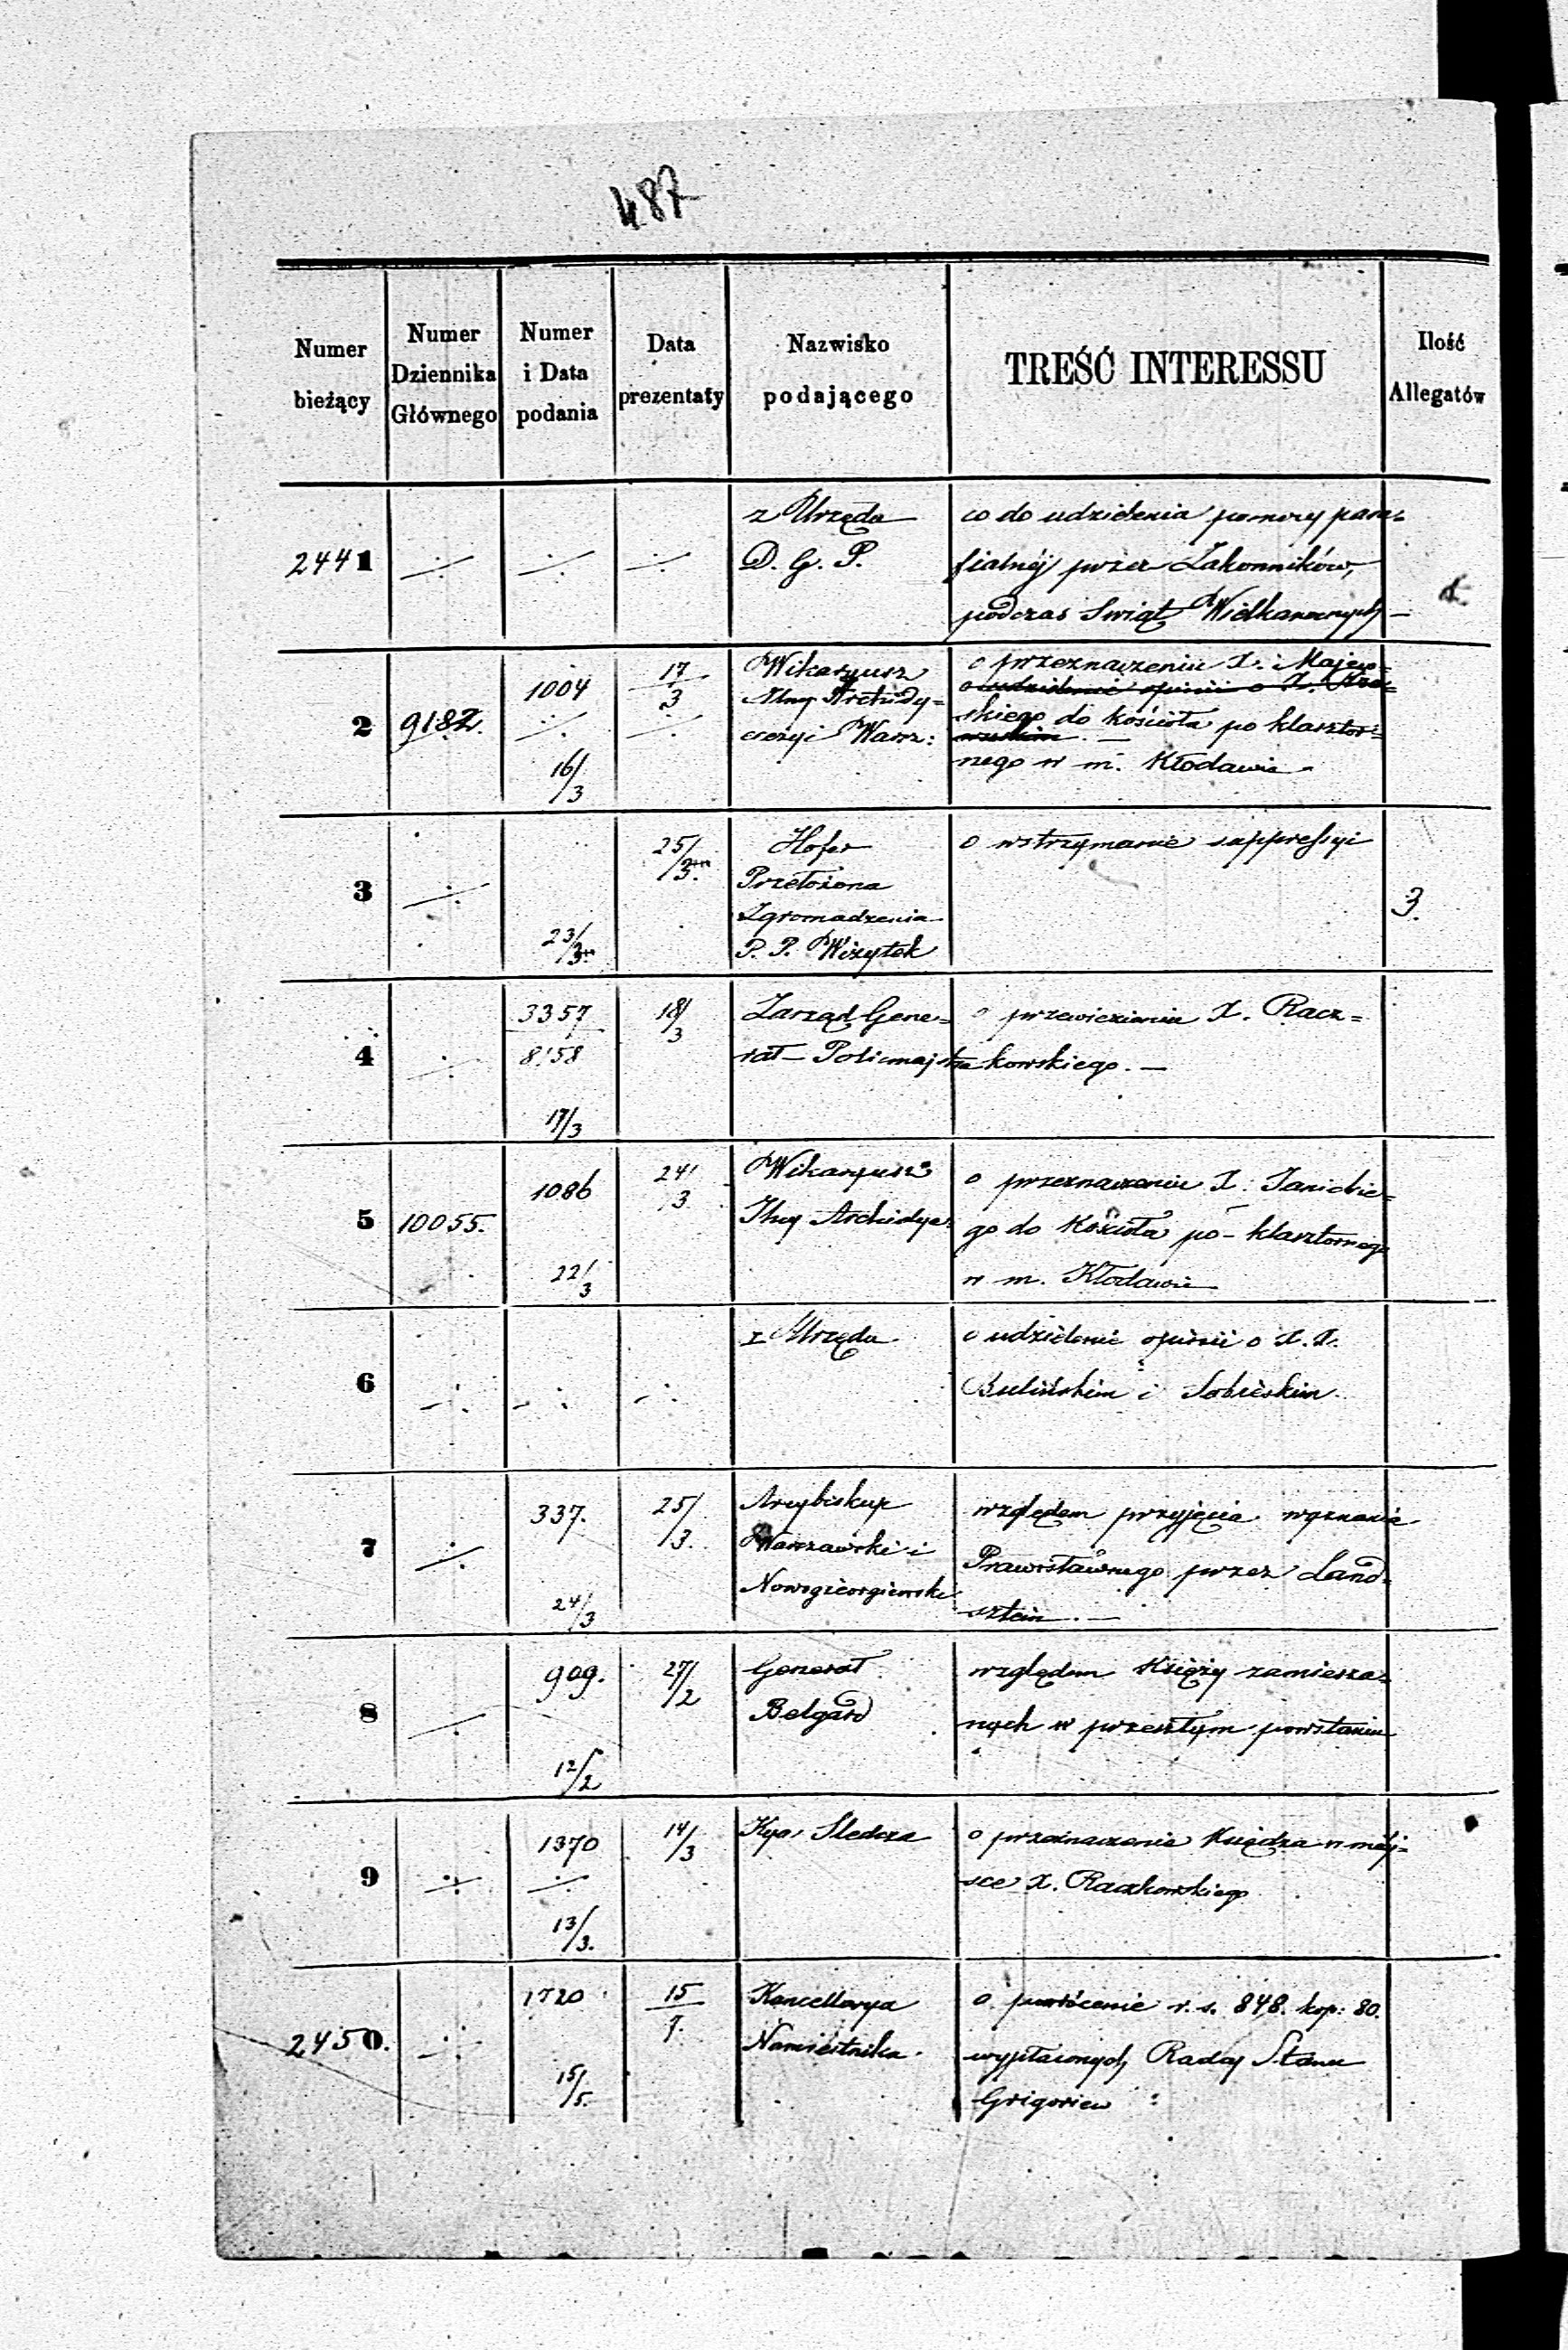 487
Numer bieżący
Numer Dziennika Głównego
Numer i Data podania
Data prezentaty
Nazwisko podającego
TREŚĆ INTERESSU
Ilość Allegatów
2441
z Urzędu
D. G. P.
co do udzielenia pomocy para-
fialnéj przez Zakonników,
podczas Swiąt Wielkanocnych —
2
9182.
1004
16/3
17/3
Wikaryusz
Archidy=
cezyi Warsz:
o przeznaczeniu X. Majew=
o udzielenie opinii o X.
skiego do kościoła po klasztor=
nego w m. Kłodawie
3
23/3
25/3
Hofer
Przełożona
Zgromadzenia
P. P. Wizytek
o wstrzymanie suppressyi
3.
4
3357
8158
17/3
18/3
Zarząd Gene=
rał — Policmajstra
o przewiezieniu X. Racz=
kowskiego. —
5
10055.
1086
22/3
24/3
Wikaryusz
Archidyec.
o przeznaczeniu X. Janickie=
go do Kościoła po- klasztornego
w m. Kłodawie
6
z Urzędu
o udzielenie opinii o X. X.
Bulińskim i Sobieskim.
7
337.
24/3
25/3.
Arcybiskup
Warszawski i
Nowogieorgiewski
względem przyjęcia wyznania
Prawosławnego przez Land-
sztein. —
8
909.
12/2
27/2
Generał
Belgard
względem Księży zamiesza-
nych w przeszłym powstaniu
9
1370
13/3.
14/3
Kya Sledcza
o przeznaczenie Księdza w miej=
sce X. Raczkowskiego
2450.
1720
15/5.
15
Kancellarya
Namiestnika.
o powrócenie r. s. 848. kop: 80.
wypłaconych Radcy Stanu
Grigoriew